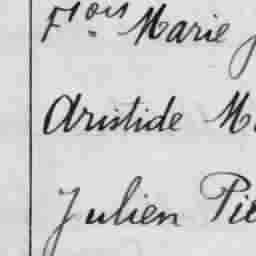 Fçois Marie
Aristide
Julien